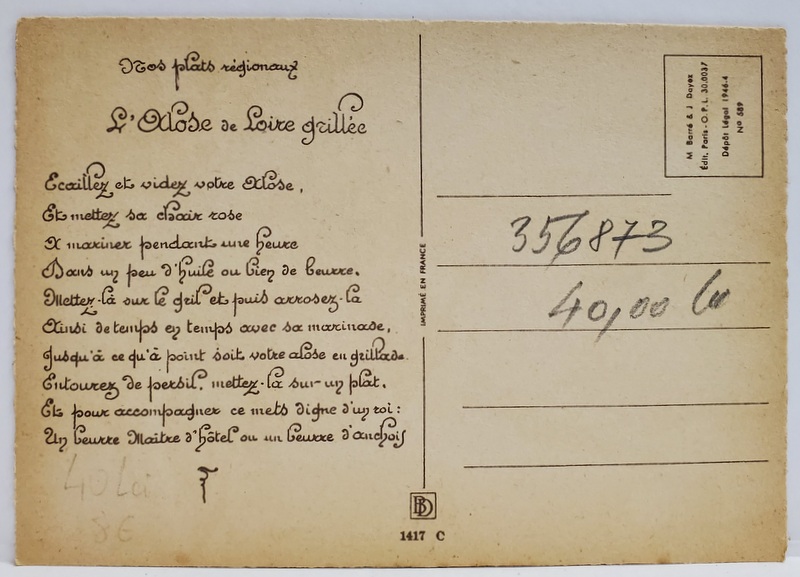 Nos plats régionaux
L'Alose de Loire grillée
Ecaillez et videz votre Alose,
Et mettez sa chair rose
A mariner pendant une heure
Dans un peu d'huile ou bien de beurre.
Mettez-là sur le gril et puis arrosez-là
Ainsi de temps en temps avec sa marinade,
Jusqu'à ce qu'à point soit votre alose en grillade.
Entourez de persil, mettez-là sur un plat,
Et pour accompagner ce mets digne d'un roi :
Un beurre Maître d'hôtel ou un beurre d'anchois
40 Lei
8€
IMPRIMÉ EN FRANCE
BD
1417 C
M Barré & J Dayez
Édit. Paris - O.P.L. 30.0037
Dépôt Légal 1946-4
N° 589
356873
40,00